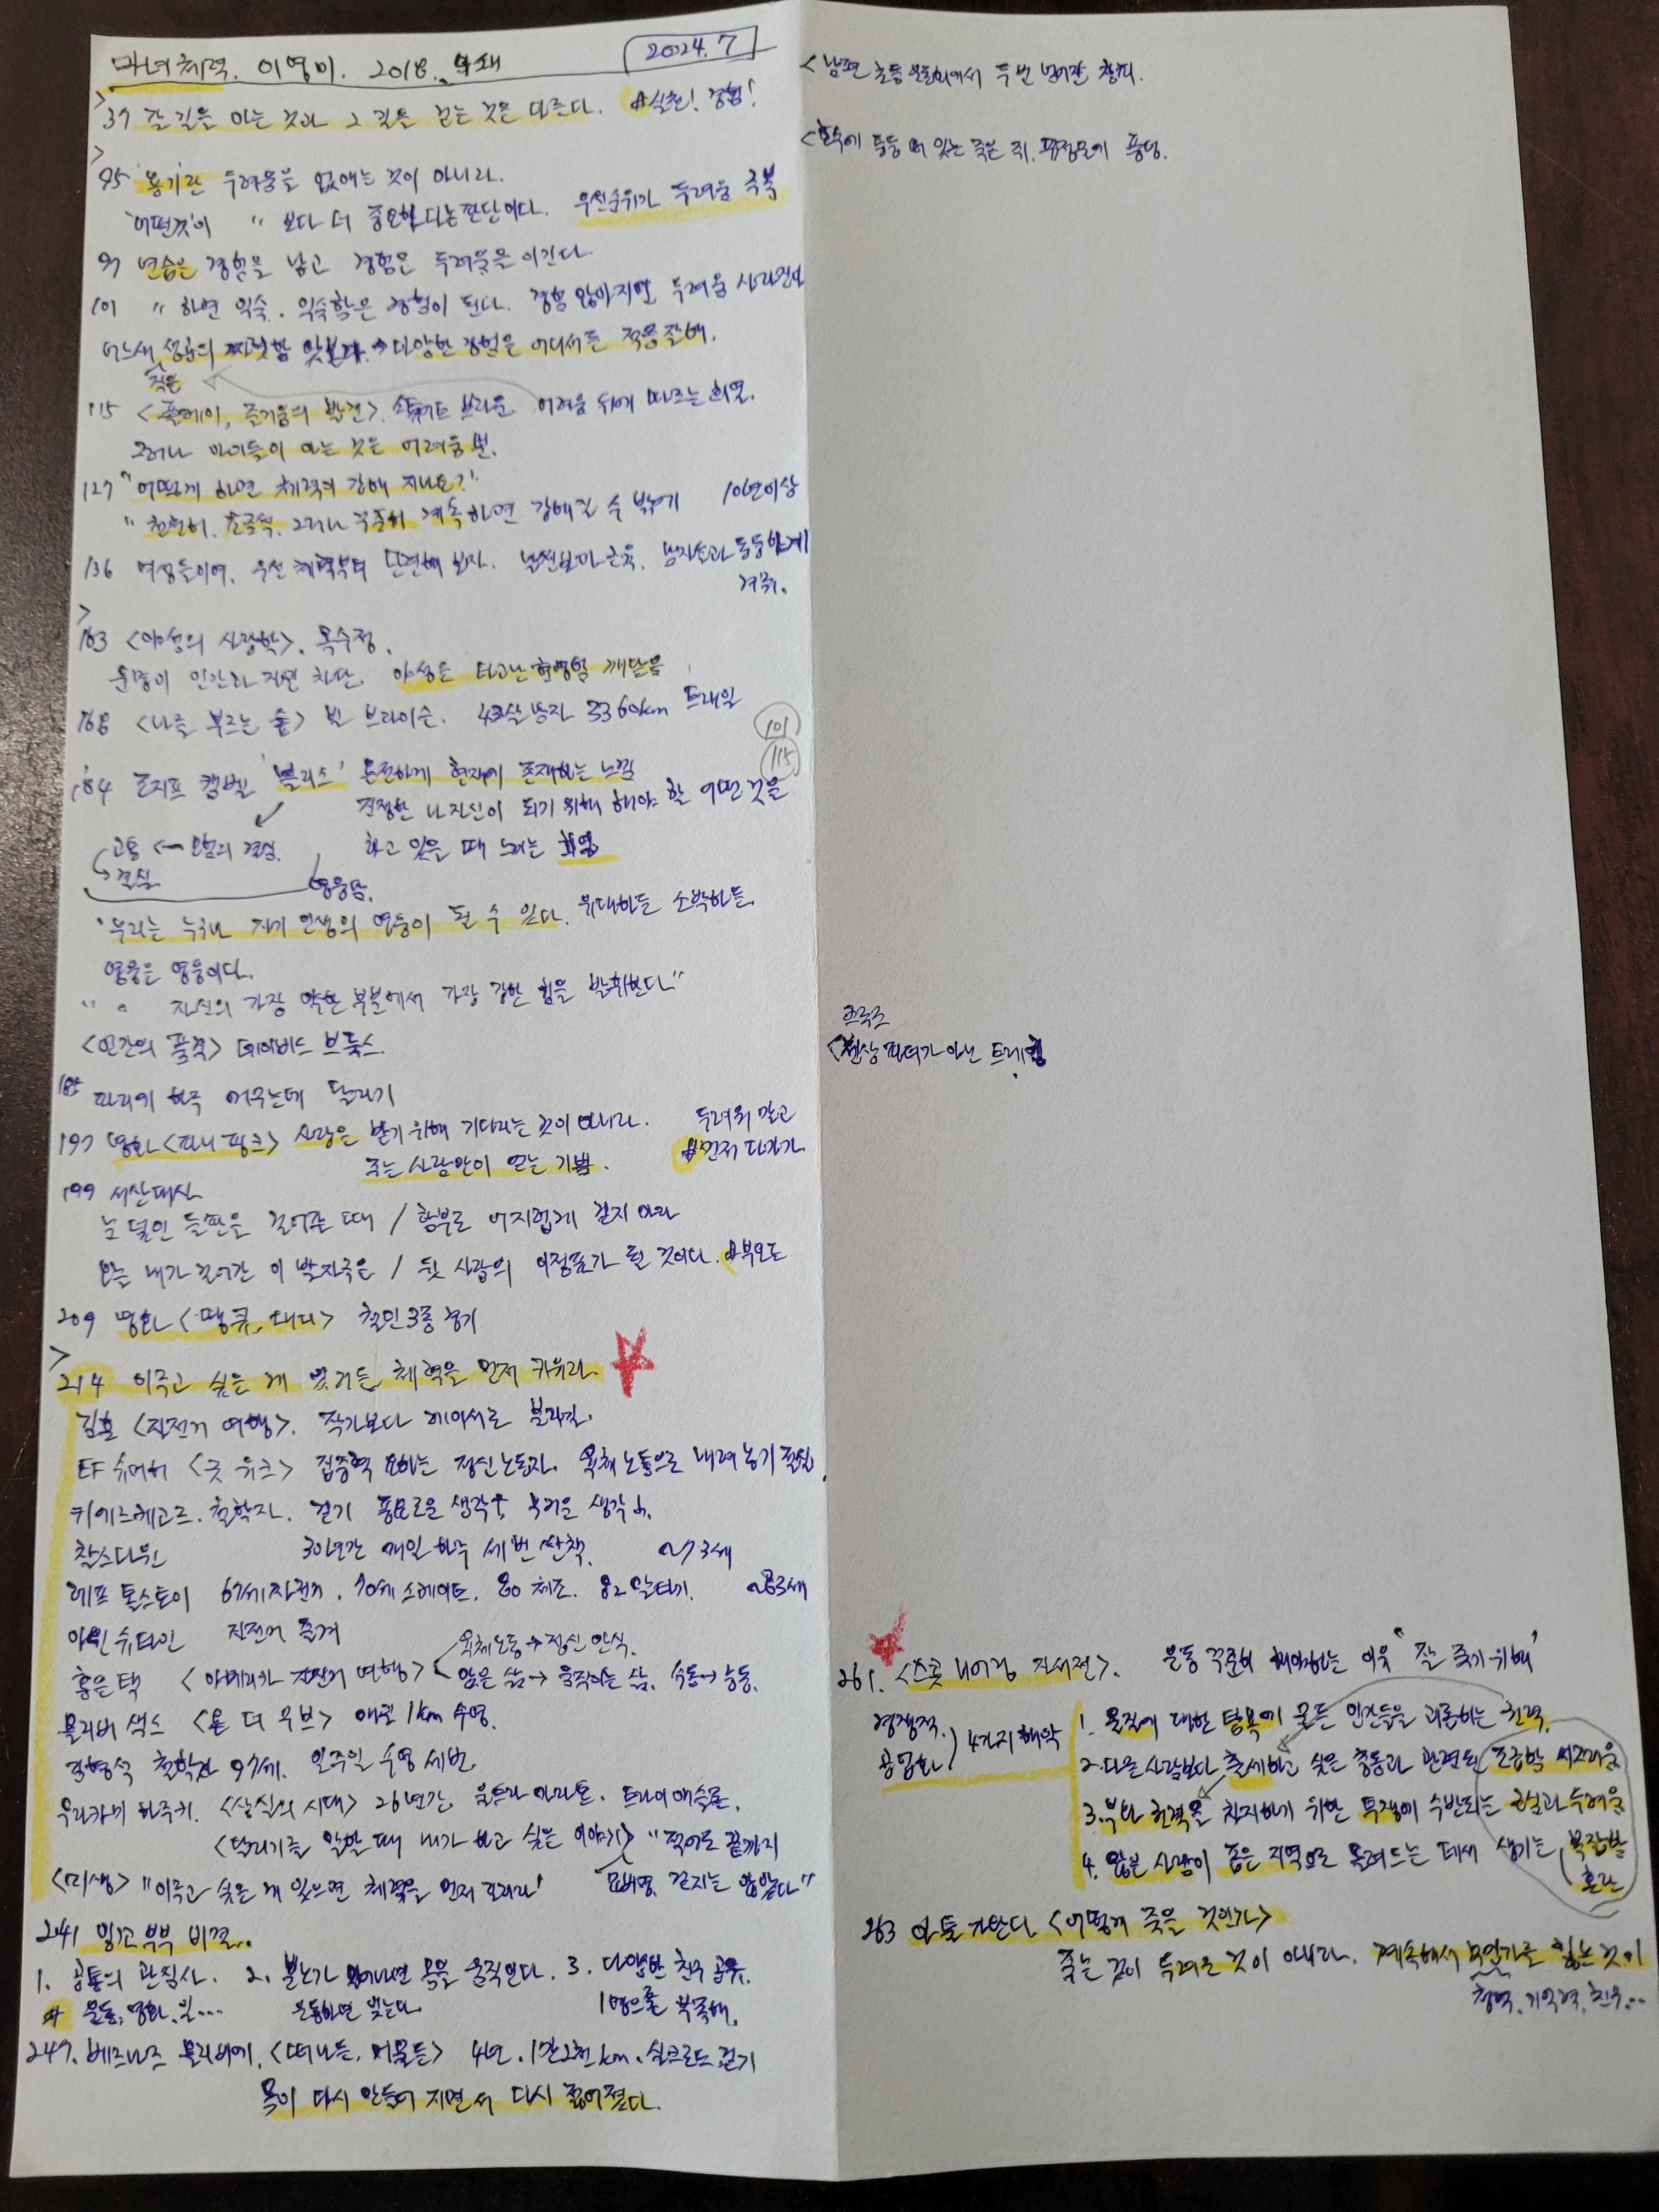 마녀체력. 이영미. 2018.
2024. 7
37 갈 길을 아는 것과 그 길을 걷는 것은 다르다. #실천! 경험!
95 용기란 두려움을 없애는 것이 아니라.
'어떤것이 〃 보다 더 중요하다는 판단이다. 우선순위가 두려움 극복
97 연습은 경험을 낳고 경험은 두려움을 이긴다
101 〃 하면 익숙. 익숙함은 경험이 된다. 경험 많아지면 두려움 사라진다
어느새 성공의 짜릿함 맛본다. → 다양한 경험은 어디서든 적응 잘해.
작은
115 <플레이, 즐거움의 발견>. 스튜어트 브라운. 어려움 뒤에 따르는 희열.
그러나 아이들이 아는 것은 어려움뿐.
127 "어떻게 하면 체력이 강해 지나요?"
〃 천천히, 조금씩. 그러나 꾸준히 계속하면 강해질 수 밖에 10년이상
136 여성들이여, 우선 체력부터 단련해 보자. 날씬보다 근육. 남자들과 동등하게
겨뤄.
163 <야성의 사랑학>. 목수정.
문명이 인간과 자연 차단. 야성은 타고난 깨달음
168 <나를 부르는 숲> 빌 브라이슨. 43살 남자 3360km 트레일
101
115
184 조지프 캠벨 '블리스' 온전하게 현재에 존재하는 느낌
진정한 나 자신이 되기 위해 해야 할 어떤 것을
고통 ← 모험의 결심. 하고 있을 때 느끼는 희열
결실
영웅담.
"우리는 누구나 자기 인생의 영웅이 될 수 있다. 위대하든 소박하든.
영웅은 영웅이다.
〃 자신의 가장 약한 부분에서 가장 강한 힘을 발휘한다"
<인간의 품격> 데이비드 브룩스.
185 파리에 하루 머무는데 달리기
197 영화 <파니 핑크> 사랑은 받기 위해 기다리는 것이 아니라. 두려워 말고
주는 사람만이 얻는 기쁨. #먼저 다가가
199 서산대사
눈 덮인 들판을 걸어갈 때 / 함부로 어지럽게 걷지 마라
오늘 내가 걸어간 이 발자국은 / 뒷 사람의 이정표가 될 것이다. #부모도
209 영화 <땡큐, 대디> 철인3종 경기
214 이루고 싶은 게 있거든 체력을 먼저 키워라.
김훈 <자전거 여행>. 작가보다 레이서로 불리길.
EF 슈마허 <굿 워크> 집중력 요하는 정신노동자. 육체노동으로 내려놓기 필요
키에르케고르. 철학자. 걷기 풍요로운 생각↑ 무거운 생각↓.
찰스다윈 30년간 매일 하루 세 번 산책. ~73세
레프 톨스토이 67세 자전거. 70세 스케이트. 80 체조. 82 말타기. ~83세
아인슈타인 자전거 즐겨
육체노동 → 정신 안식.
홍은택 <아메리카 자전거 여행> 앉은 삶 → 움직이는 삶. 수동→능동.
올리버 색스 <온 더 무브> 매일 1km 수영.
김형석 철학자 97세. 일주일 수영 세번
무라카미 하루키. <상실의 시대> 26년간. 울트라 마라톤. 트라이애슬론.
<달리기를 말할 때 내가 하고 싶은 이야기> "적어도 끝까지
묘비명. 걷지는 않았다"
<미생> "이루고 싶은 게 있으면 체력을 먼저 길러라"
241 잉꼬부부 비결..
1. 공통의 관심사. 2. 분노가 일어나면 몸을 움직인다. 3. 다양한 친구 공유.
# 운동, 영화, 일… 운동하면 웃는다 1명으론 부족해.
247. 베르나르 올리비에. <떠나든, 머물든> 4년. 1만2천km. 실크로드 걷기
몸이 다시 만들어 지면서 다시 젊어졌다.
<남편 초등 운동회에서 두번 넘어진 창피.
<호수에 둥둥 떠 있는 죽은 쥐. 풍덩.
하루
<천상 파더가 아닌
261. <스콧 니어링 자서전>. 운동 꾸준히 해야하는 이유 "잘 죽기 위해"
경쟁적. 공업화 4가지 해악
1. 물질에 대한 탐욕에 물든 인간들을 괴롭히는 권력.
2. 다른 사람보다 출세하고 싶은 충동과 관련된 조급함 시끄러움
3. 부와 권력을 차지하기 위한 투쟁에 수반되는 근심과 두려움
4. 많은 사람이 좁은 지역으로 몰려드는 데서 생기는 복잡함
혼란
263 아툴 가완디 <어떻게 죽을 것인가>
죽는 것이 두려운 것이 아니라. 계속해서 무언가를 잃는 것이
청력, 기억력, 친구…